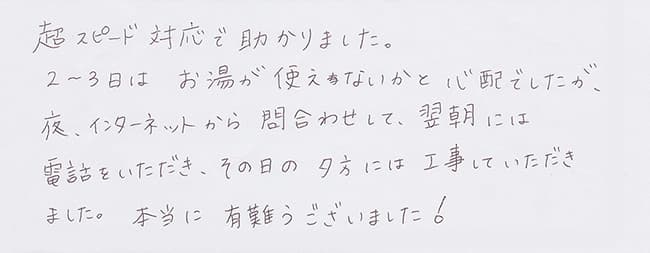 超スピード対応で助かりました。
2～3日は お湯が使えないかと心配でしたが、
夜、インターネットから問合わせして、翌朝には
電話をいただき、その日の夕方には工事していただき
ました。 本当に有難うございました!